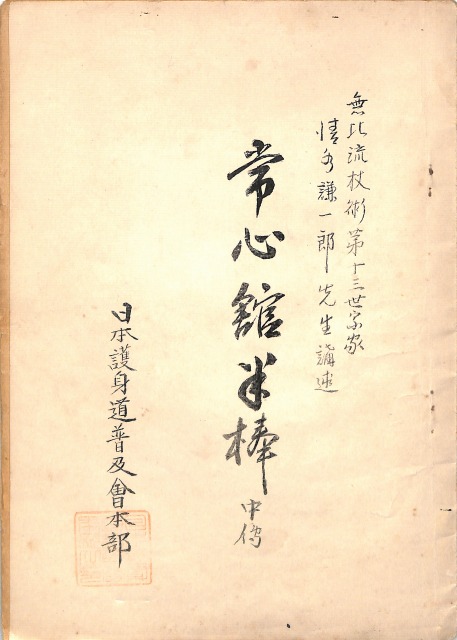 無比流杖術第十三世宗家
謙一郎先生講述
常心舘半棒
中傳
日本護身道普及會本部